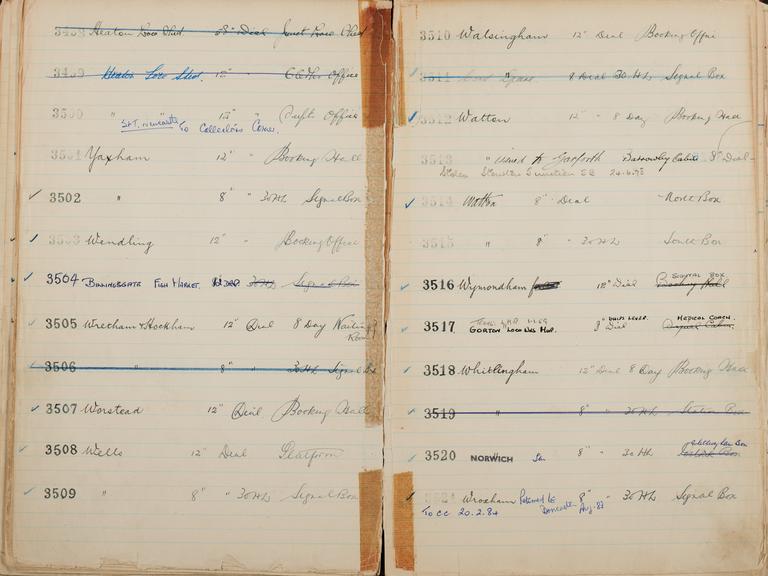 3498 Heaton Loco Shed 28" Dial Loco Shed
3499 Heaton Loco Shed. 12" " Office
3500 " 12" " Office
S&T. Newcastle To Collectors Corner.
3501 Yaxham 12" " Booking Hall
3502 " 8" " 30 Hr Signal Box
3503 Wendling 12" " Booking Office
3504 Billingsgate Fish Market. 12" Dial 30 Hr Signal Box
3505 Wretham & Hockham 12" Dial 8 Day Waiting
Room
3506 " 8" " 30 Hr Signal Box
3507 Worstead 12" Dial Booking Hall
3508 Wells 12" Dial Platform
3509 " 8" " 30 Hr Signal Box
3510 Walsingham 12" Dial Booking Office
3511 " 8 Dial 30 Hr Signal Box
3512 Watten 12" " 8 Day Booking Hall
3513 " issued to Garforth Barrowby Cabin 8" Dial
Stolen Junction SB 24.6.78
3514 Watton 8" Dial North Box
3515 " 8" " 30 Hr South Box
3516 Wymondham 12" Dial Booking Hall
SIGNAL BOX
3517 GORTON LOCO WKS 8" Dial
MEDICAL COACH.
3518 Whitlingham 12" Dial 8 Day Booking Hall
3519 " 8" " 30 Hr Station Box
3520 NORWICH 8" " 30 Hr Box
3521 Wroxham Returned to 8" " 30 Hr Signal Box
Doncaster Aug. 83
To CC 20.2.84